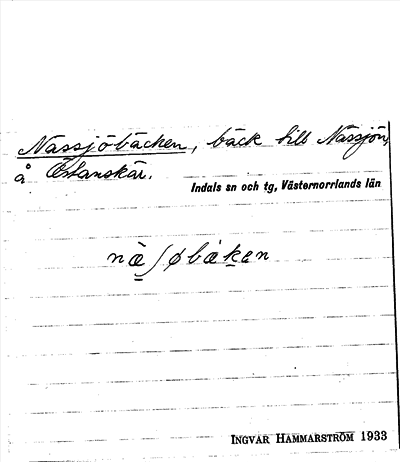 Nässjöbäcken, bäck till Nässjön,
å Östanskär.
Indals sn och tg, Västernorrlands län
næ̀ʃøbæken
INGVAR HAMMARSTRÖM 1933